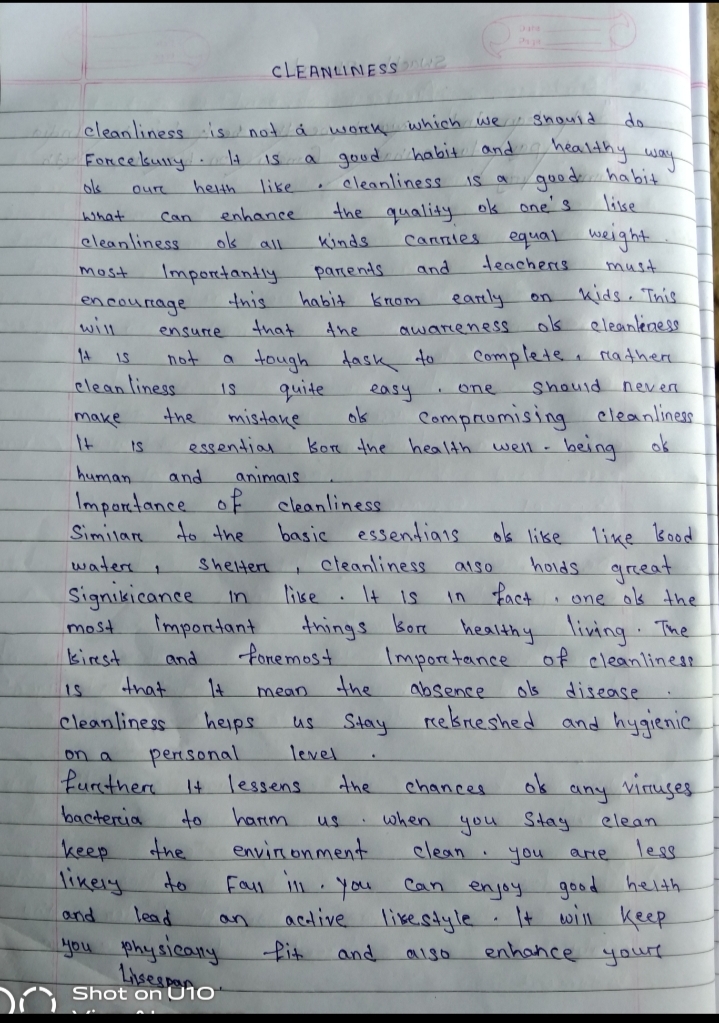 CLEANLINESS
cleanliness is not a work which we should do
Forcefully. It is a good habit and healthy way
of our helth life. cleanliness is a good habit
what can enhance the quality of one's life
cleanliness of all kinds carries equal weight.
most Importantly parents and teachers must
encourage this habit from early on kids. This
will ensure that the awareness of cleanliness
It is not a tough task to complete, rather
cleanliness is quite easy. one should never
make the mistake of compromising cleanliness
It is essential for the health well-being of
human and animals.
Importance of cleanliness
Similar to the basic essentials of life like food
water, shelter, cleanliness also holds great
significance in life. It is in fact, one of the
most important things for healthy living. The
first and foremost Importance of cleanliness
is that It mean the absence of disease.
cleanliness helps us stay refreshed and hygienic
on a personal level.
further It lessens the chances of any viruses
bacteria to harm us. when you stay clean
keep the environment clean. you are less
likely to Fall ill. you can enjoy good helth
and lead an active lifestyle. It will keep
you physically fit and also enhance your
lifespan.
Shot on U10